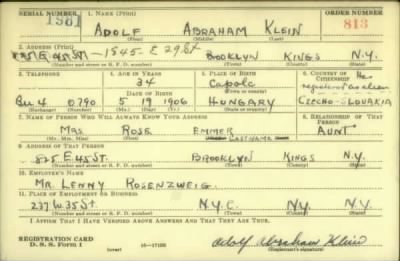 SERIAL NUMBER 1. NAME (Print) ORDER NUMBER
1981 ADOLF ABRAHAM KLEIN 813
(First) (Middle) (Last)
2. ADDRESS (Print)
825 E 45 ST — 1545 E 29 St BOOKLYN KINGS N.Y.
(Number and street or R. F. D. number) (Town) (County) (State)
3. TELEPHONE 4. AGE IN YEARS 5. PLACE OF BIRTH 6. COUNTRY OF CITIZENSHIP He
34 Capole registered as alien
DATE OF BIRTH (Town or county)
BU 4 0790 5 19 1906 HUNGARY CZECHO-SLOVAKIA
(Exchange) (Number) (Mo.) (Day) (Yr.) (State or country)
7. NAME OF PERSON WHO WILL ALWAYS KNOW YOUR ADDRESS 8. RELATIONSHIP OF THAT PERSON
MRS ROSE EMMER LAST NAME AUNT
(Mr., Mrs., Miss) (First)
9. ADDRESS OF THAT PERSON
825 E 45 ST. BROOKLYN KINGS N.Y.
(Number and street or R. F. D. number) (Town) (County) (State)
10. EMPLOYER'S NAME
MR. LENNY ROSENZWEIG
11. PLACE OF EMPLOYMENT OR BUSINESS
237 W. 35 ST N.Y.C. N.Y. N.Y.
(Number and street or R. F. D. number) (Town) (County) (State)
I AFFIRM THAT I HAVE VERIFIED ABOVE ANSWERS AND THAT THEY ARE TRUE.
REGISTRATION CARD
D. S. S. Form 1 (over) 16—17105 Adolf Abraham Klein
(Registrant's signature)